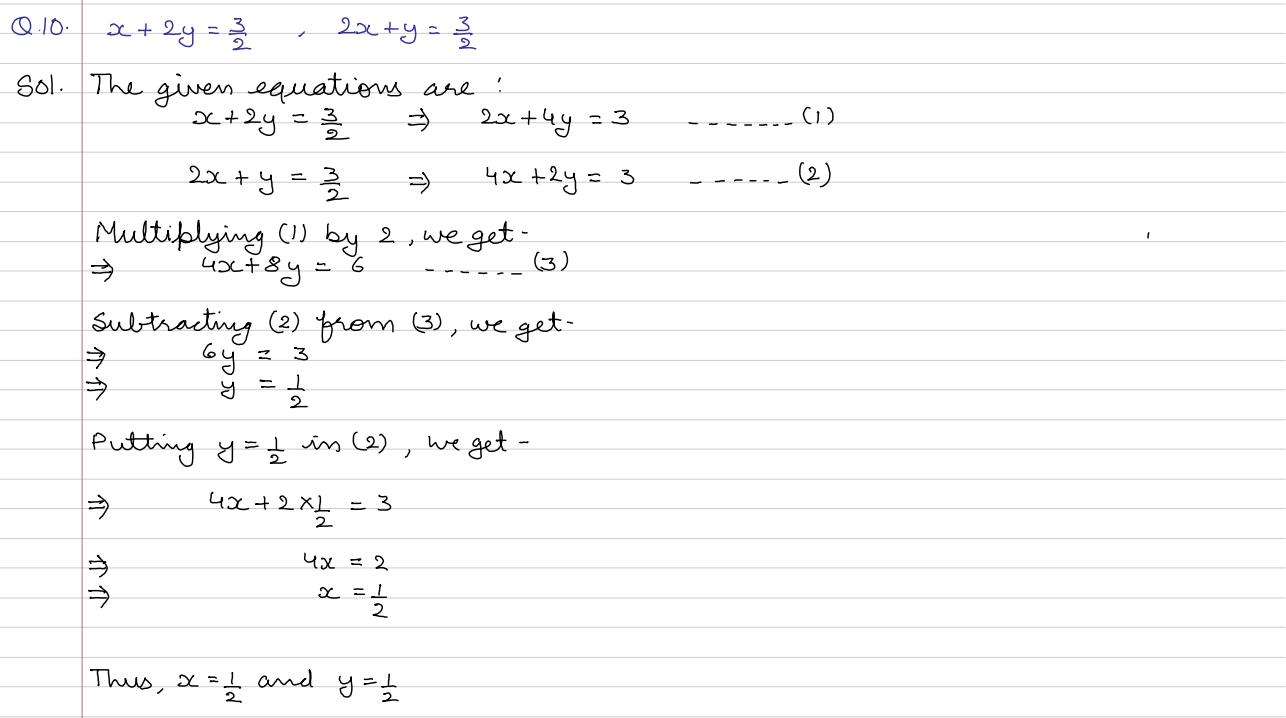 Q.10. x + 2y = 3/2 , 2x + y = 3/2
Sol. The given equations are :
x + 2y = 3/2 ⇒ 2x + 4y = 3 ------- (1)
2x + y = 3/2 ⇒ 4x + 2y = 3 ------ (2)
Multiplying (1) by 2, we get -
⇒ 4x + 8y = 6 ------ (3)
Subtracting (2) from (3), we get -
⇒ 6y = 3
⇒ y = 1/2
Putting y = 1/2 in (2), we get -
⇒ 4x + 2 × 1/2 = 3
⇒ 4x = 2
⇒ x = 1/2
Thus, x = 1/2 and y = 1/2